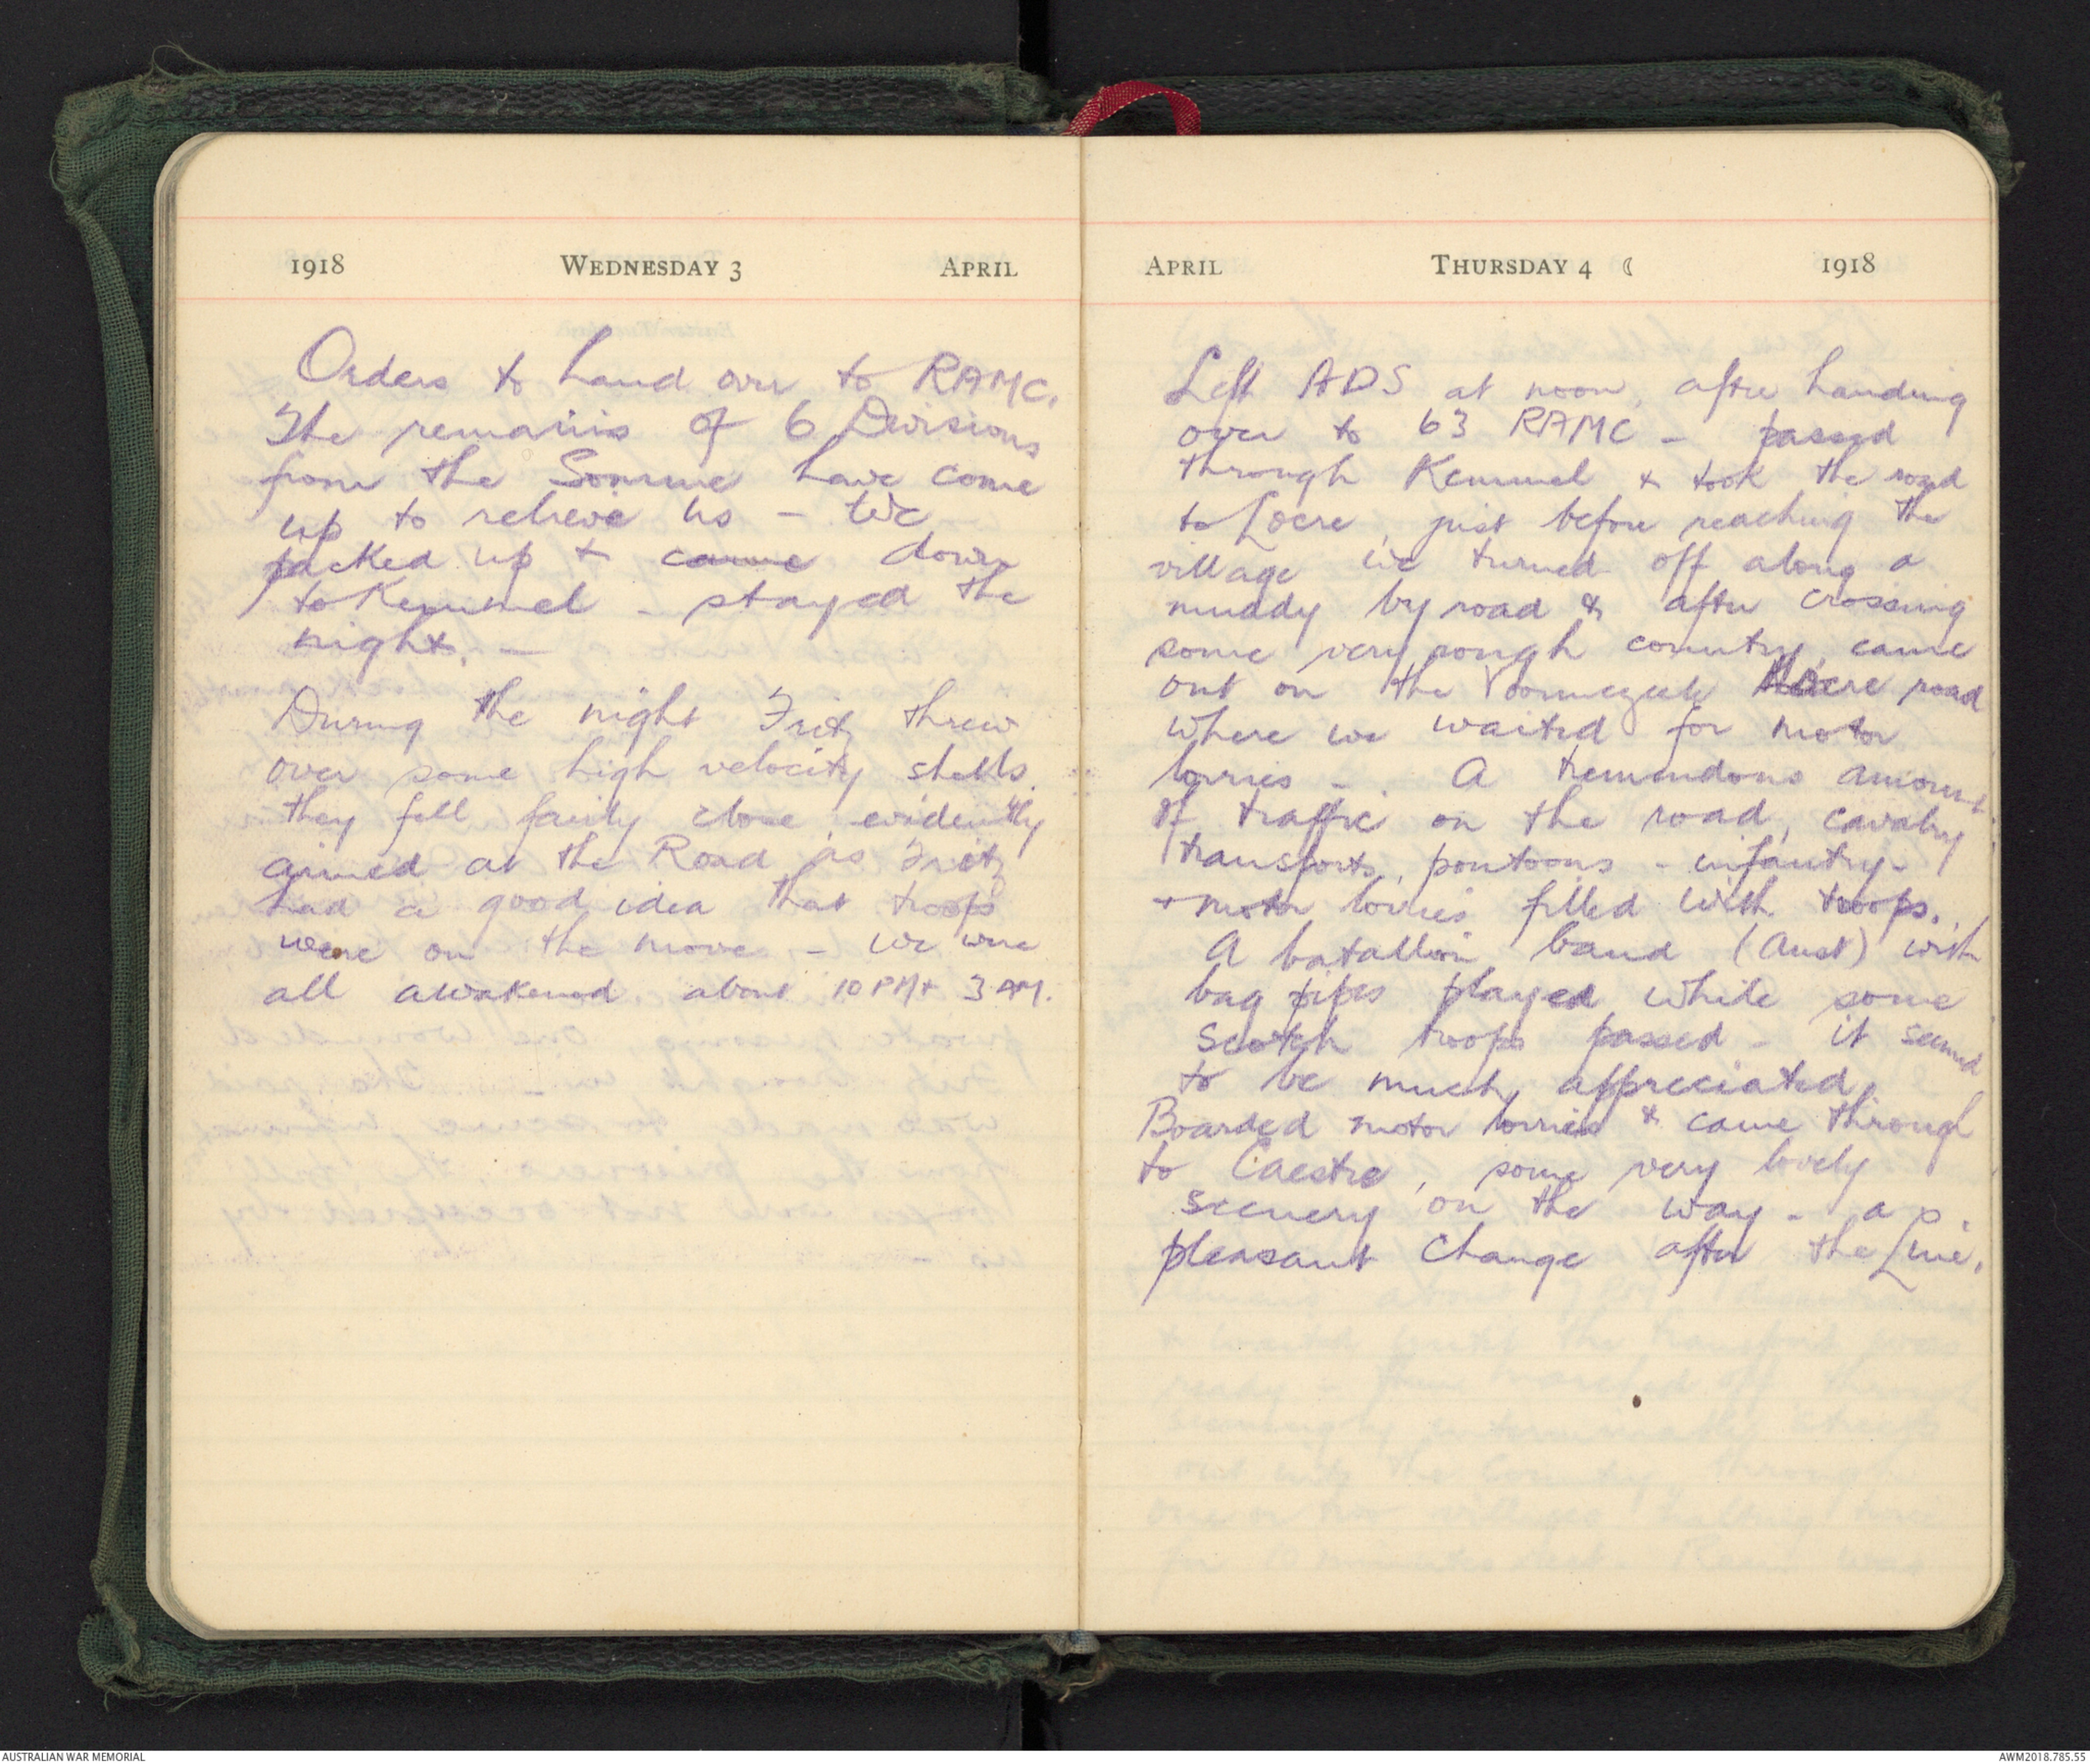 1918 WEDNESDAY 3 APRIL
Orders to hand over to RAMC.
The remains of 6 Divisions
from the Somme have come
up to relieve us - We
packed up & came down
to Kemmel - stayed the
night. -
During the night Fritz threw
over some high velocity shells
they fell fairly close evidently
aimed at the Road as Fritz
had a good idea that troops
were on the move - we were
all awakened about 10 PM & 3 AM.
APRIL THURSDAY 4 ☾ 1918
Left ADS at noon, after handing
over to 63 RAMC - passed
through Kemmel & took the road
to Locre, just before reaching the
village we turned off along a
muddy by road & after crossing
some very rough country, came
out on the Voormezeele Locre road
where we waited for motor
lorries - A tremendous amount
of traffic on the road, cavalry
transports, pontoons - infantry -
& motor lorries filled with troops.
A batallion band (Aust) with
bag pipes played while some
Scotch troops passed - it seemed
to be much appreciated,
Boarded motor lorries & came through
to Caestre, some very lovely
scenery on the way - a
pleasant change after the Line.
AUSTRALIAN WAR MEMORIAL
AWM2018.785.55